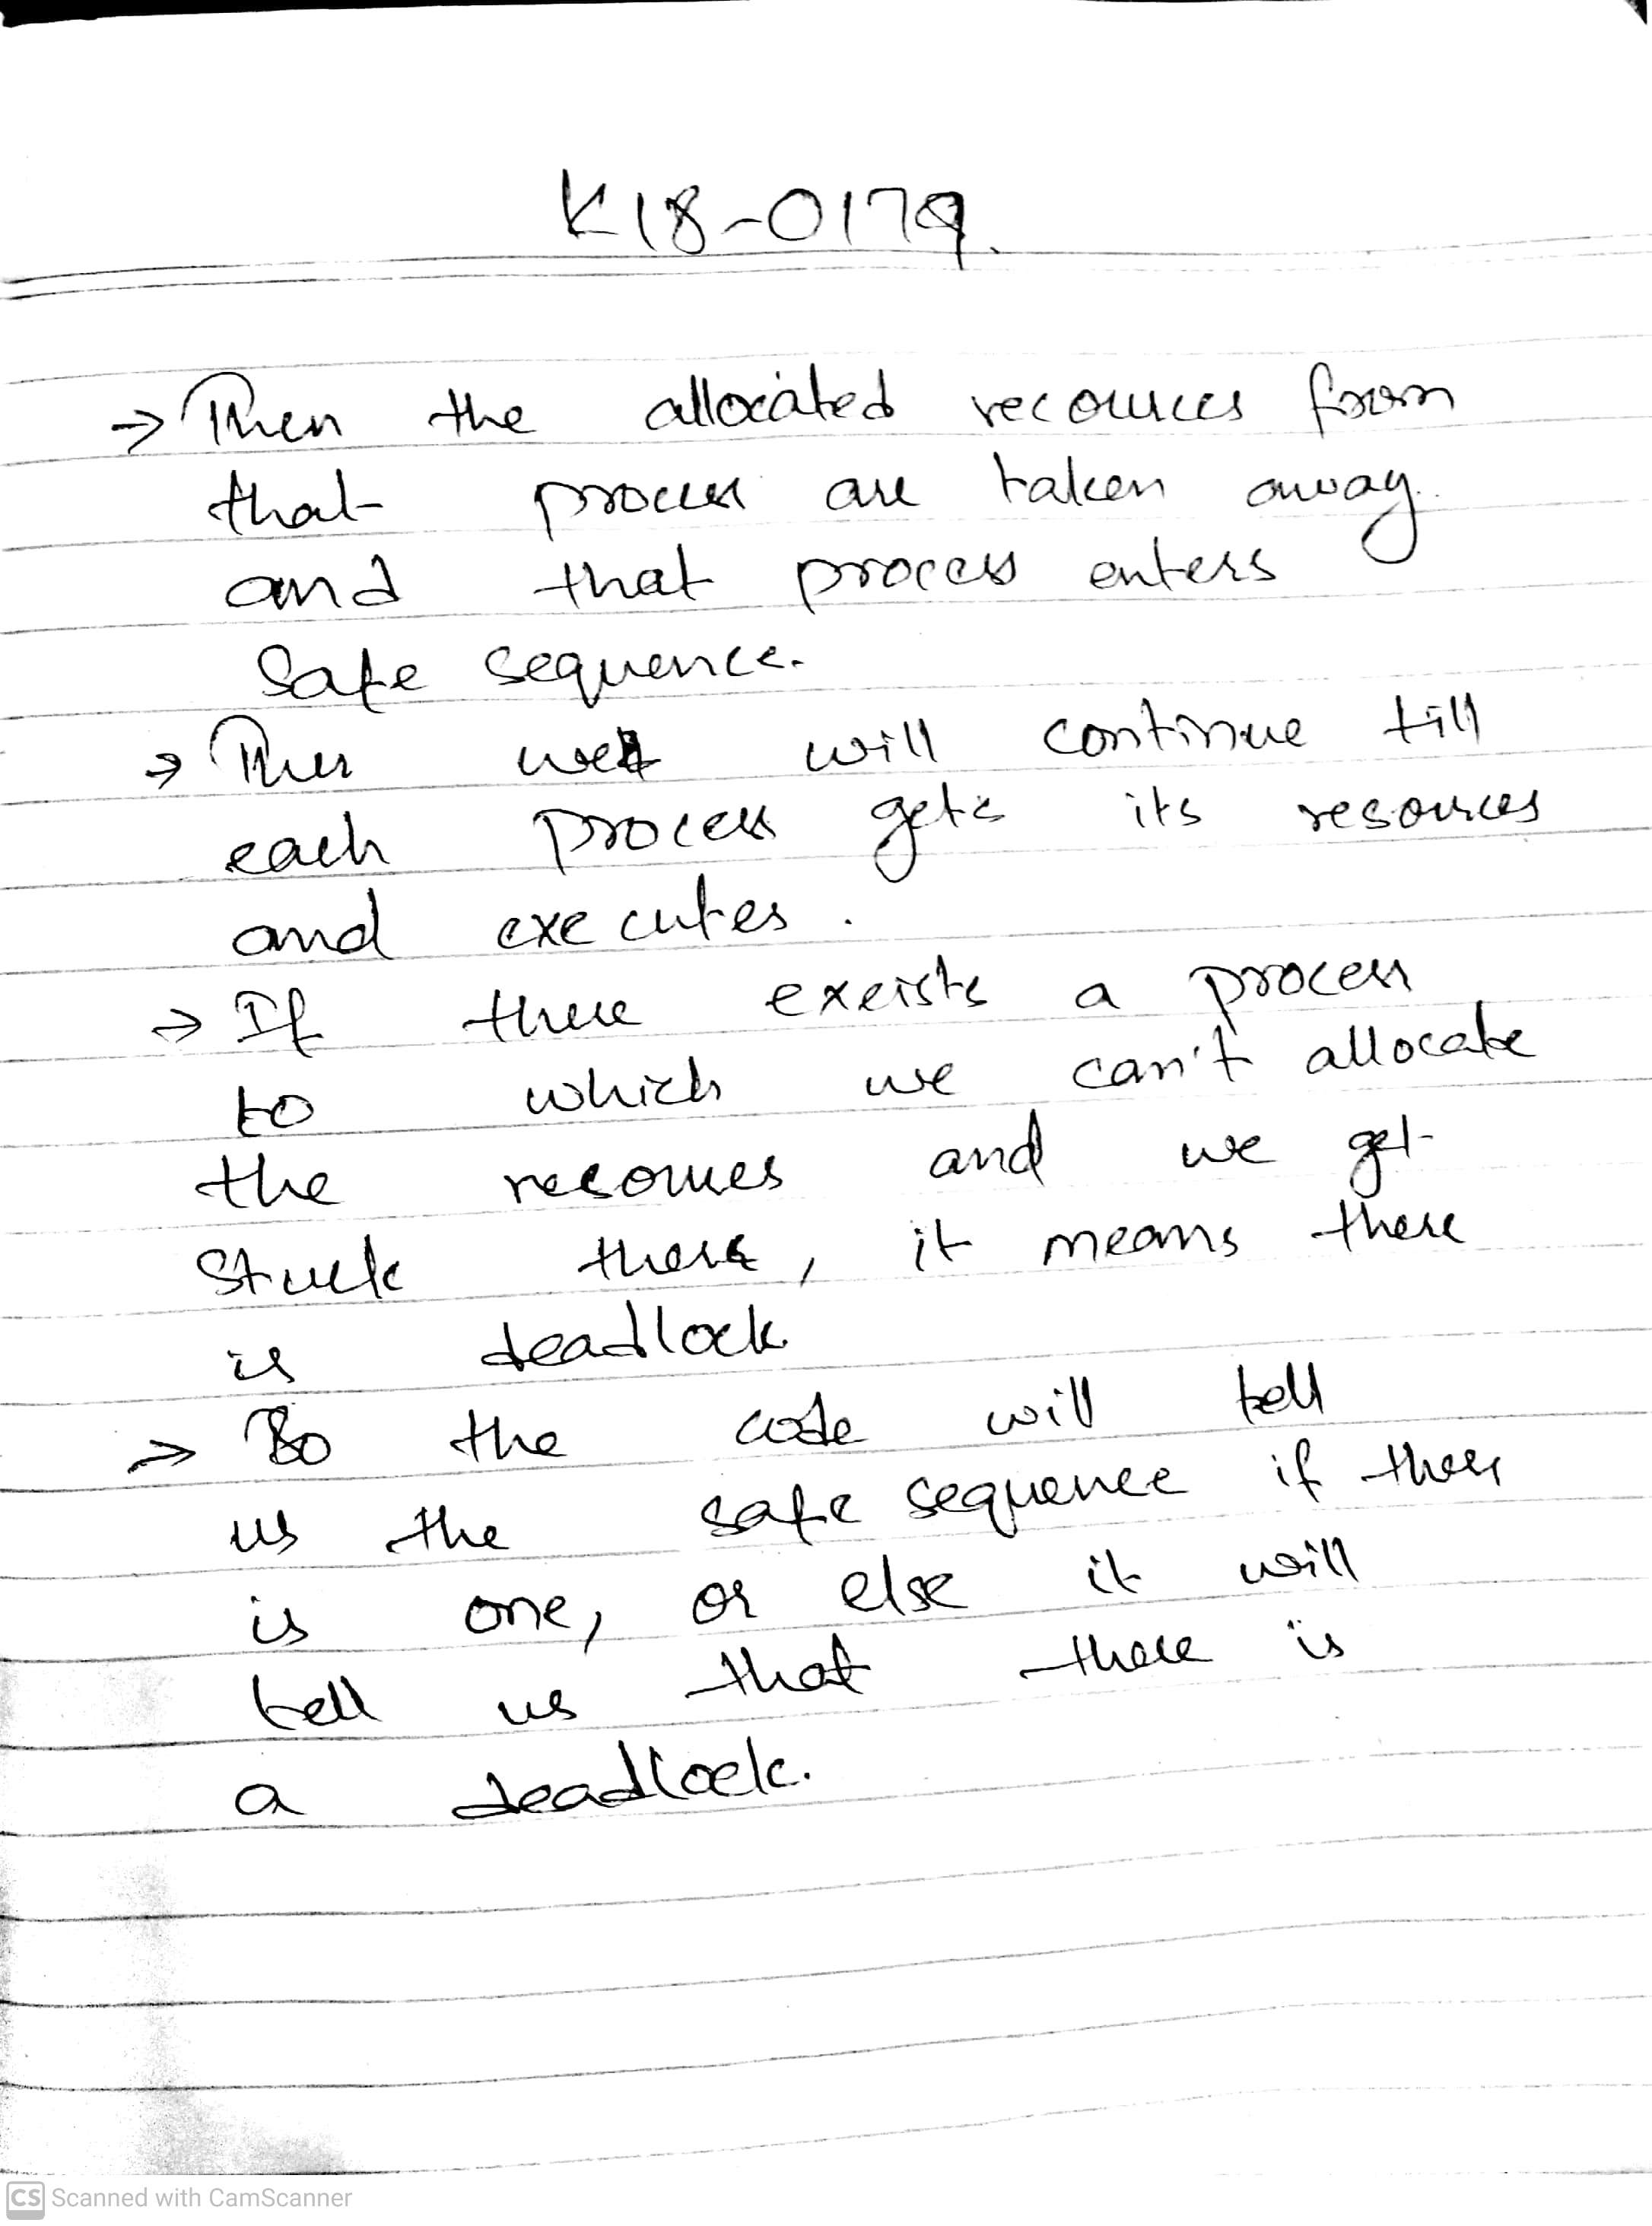 K18-0179.
→ Then the allocated recources from
that process are taken away.
and that process enters
Safe sequence.
→ Then we will continue till
each process gets its resources
and executes.
→ If there exeists a process
to which we can't allocate
the resources and we get
Stuck there, it means there
is deadlock.
→ So the code will tell
us the safe sequence if there
is one, or else it will
tell us that there is
a deadlock.
CS Scanned with CamScanner